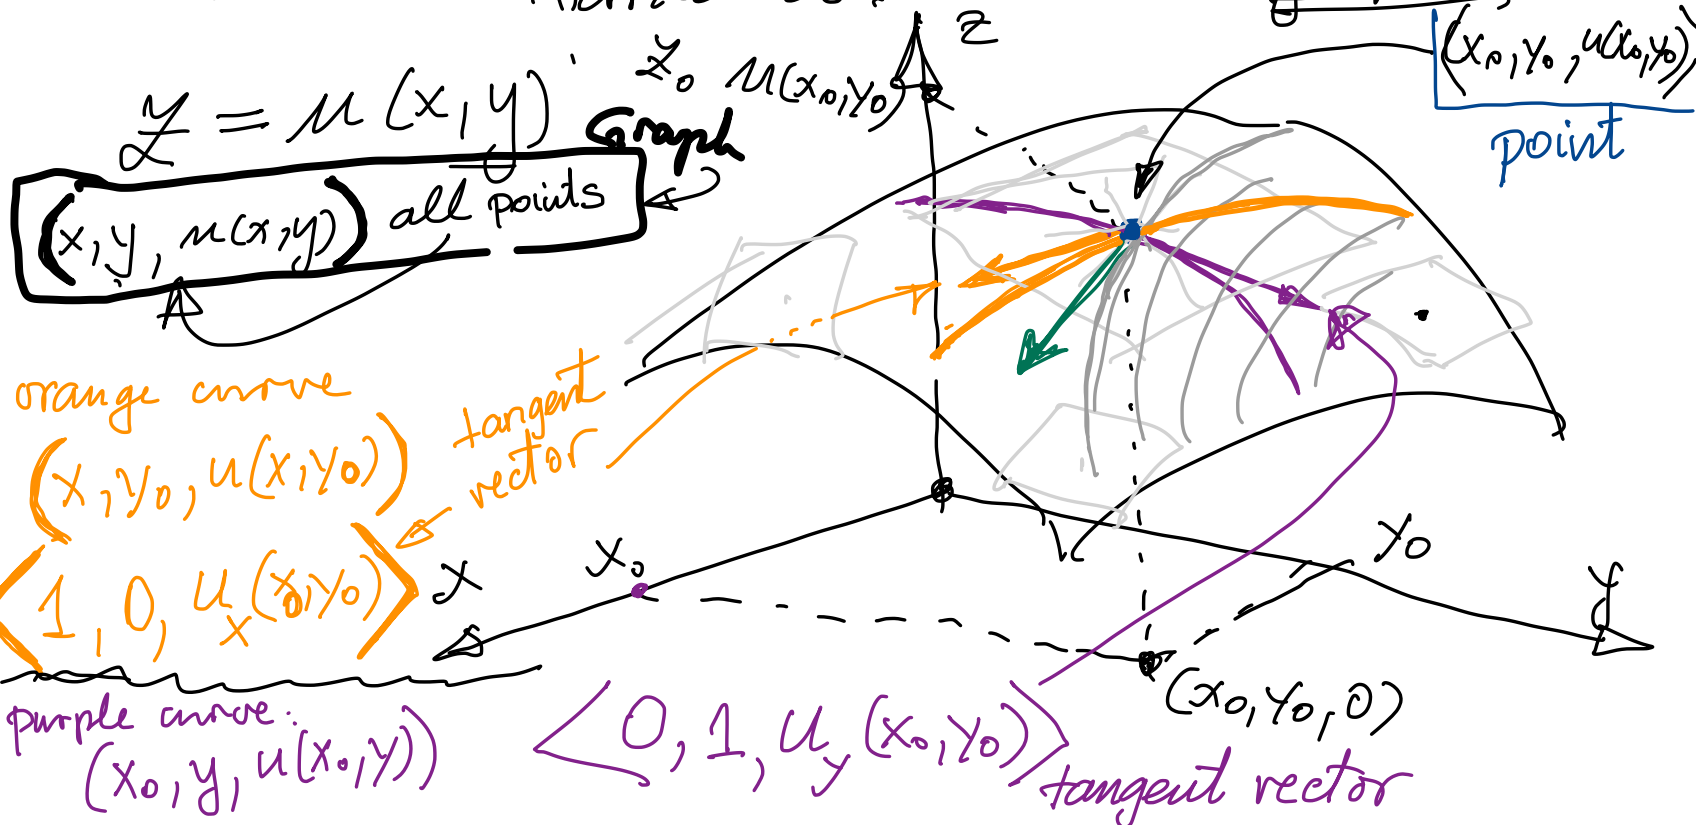 z
z₀ u(x₀,y₀)
(x₀, y₀, u(x₀,y₀))
point
z = u(x,y)
Graph
(x, y, u(x,y)) all points
orange curve
(x, y₀, u(x,y₀))
tangent
vector
⟨1, 0, uₓ(x₀,y₀)⟩
x
x₀
y₀
y
(x₀, y₀, 0)
purple curve:
(x₀, y, u(x₀,y))
⟨0, 1, u_y(x₀,y₀)⟩
tangent vector